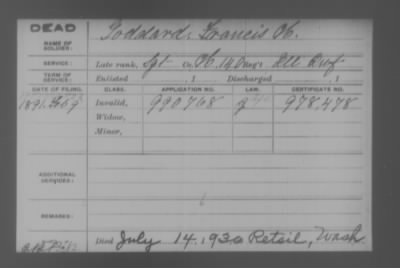 DEAD
NAME OF SOLDIER: Goddard, Francis H.
SERVICE: Late rank, Sgt Co. H. 140 Reg't Ill Inf
TERM OF SERVICE: Enlisted , 1 Discharged , 1
DATE OF FILING. CLASS. APPLICATION NO. LAW. CERTIFICATE NO.
1891. Invalid, 990768 978,478
Widow,
Minor,
ADDITIONAL SERVICES:
REMARKS:
Died July 14, 1930 Retsil, Wash